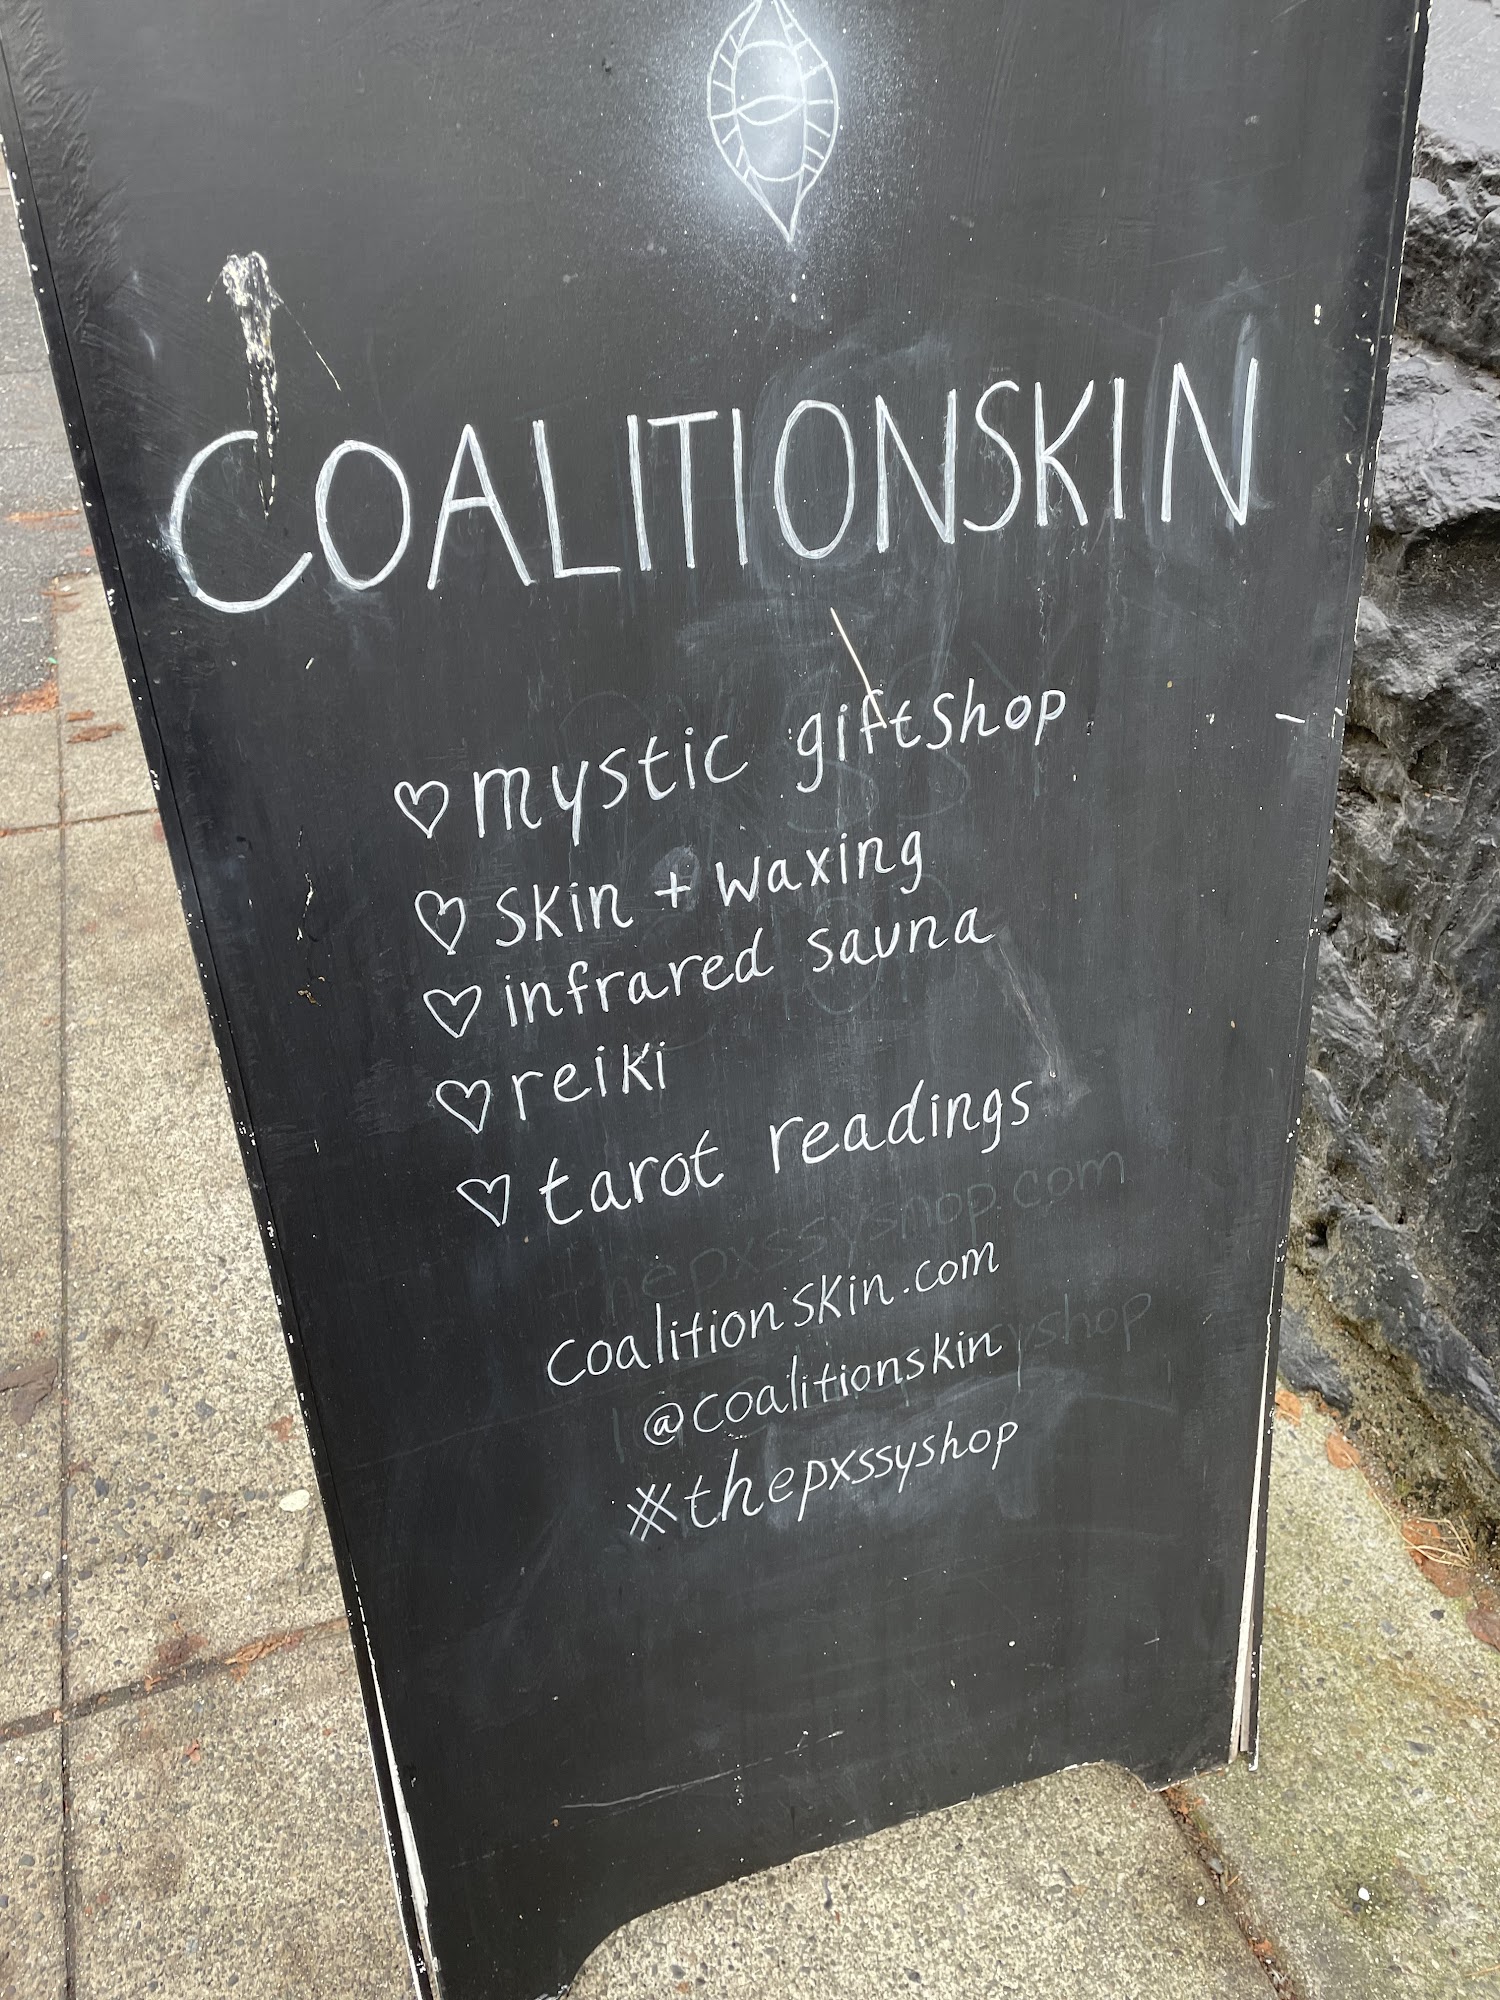 COALITIONSKIN
♡ mystic giftshop
♡ skin + waxing
♡ infrared sauna
♡ reiki
♡ tarot readings
thepxssyshop.com
coalitionskin.com
@coalitionskin
#thepxssyshop